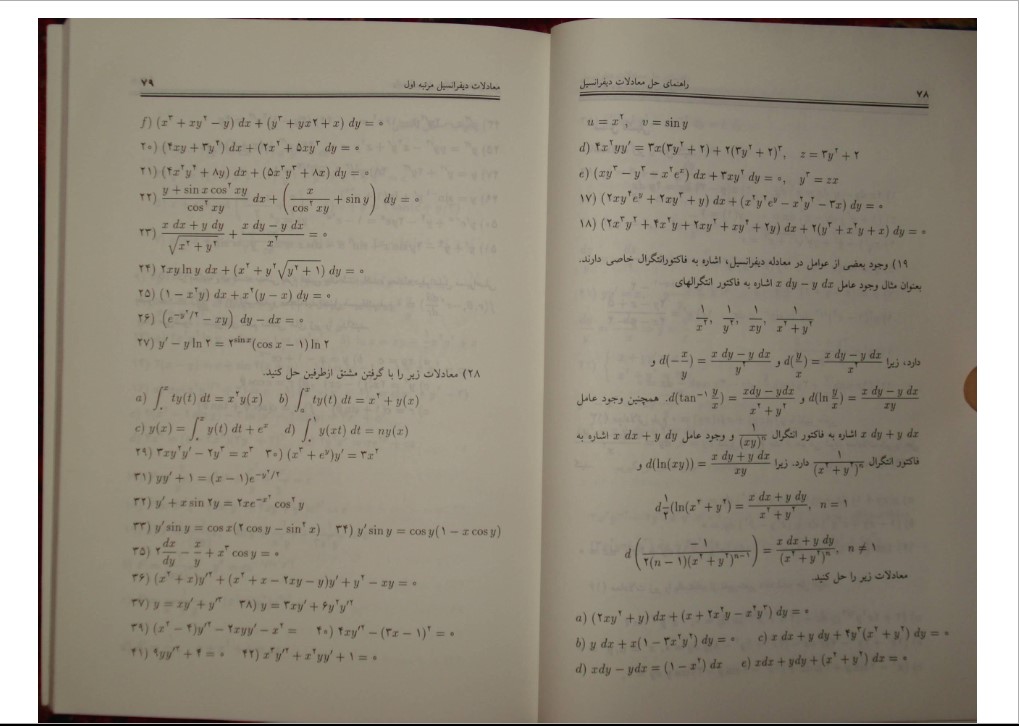 راهنمای حل معادلات دیفرانسیل ۷۸
u = x^۲, v = sin y
d) ۴x^۲yy′ = ۳x(۳y^۲ + ۲) + ۲(۳y^۲ + ۲)^۳, z = ۳y^۲ + ۲
e) (xy^۳ − y^۳ − x^۲e^x) dx + ۳xy^۲ dy = ۰, y^۳ = zx
۱۷) (۲xy^۴e^y + ۲xy^۳ + y) dx + (x^۲y^۴e^y − x^۲y^۲ − ۳x) dy = ۰
۱۸) (۲x^۳y^۲ + ۴x^۲y + ۲xy^۲ + xy^۴ + ۲y) dx + ۲(y^۳ + x^۲y + x) dy = ۰
۱۹) وجود بعضی از عوامل در معادله دیفرانسیل، اشاره به فاکتورانتگرال خاصی دارند.
بعنوان مثال وجود عامل x dy − y dx اشاره به فاکتور انتگرالهای
۱/x^۲, ۱/y^۲, ۱/xy, ۱/(x^۲ + y^۲)
دارد، زیرا d(y/x) = (x dy − y dx)/x^۲ و d(−x/y) = (x dy − y dx)/y^۲ و
d(ln y/x) = (x dy − y dx)/xy و d(tan^−۱ y/x) = (xdy − ydx)/(x^۲ + y^۲). همچنین وجود عامل
x dy + y dx اشاره به فاکتور انتگرال ۱/(xy)^n و وجود عامل x dx + y dy اشاره به
فاکتور انتگرال ۱/(x^۲ + y^۲)^n دارد. زیرا d(ln(xy)) = (x dy + y dx)/xy و
d ۱/۲(ln(x^۲ + y^۲) = (x dx + y dy)/(x^۲ + y^۲), n = ۱
d(−۱/(۲(n − ۱)(x^۲ + y^۲)^(n−۱))) = (x dx + y dy)/(x^۲ + y^۲)^n, n ≠ ۱
معادلات زیر را حل کنید.
a) (۲xy^۲ + y) dx + (x + ۲x^۲y − x^۴y^۳) dy = ۰
b) y dx + x(۱ − ۳x^۲y^۲) dy = ۰ c) x dx + y dy + ۴y^۳(x^۲ + y^۲) dy = ۰
d) xdy − ydx = (۱ − x^۲) dx e) xdx + ydy + (x^۲ + y^۲) dx = ۰
معادلات دیفرانسیل مرتبه اول ۷۹
f) (x^۳ + xy^۲ − y) dx + (y^۳ + yx۲ + x) dy = ۰
۲۰) (۴xy + ۳y^۴) dx + (۲x^۲ + ۵xy^۳ dy = ۰
۲۱) (۴x^۲y^۲ + ۸y) dx + (۵x^۳y^۲ + ۸x) dy = ۰
۲۲) (y + sin x cos^۲ xy)/cos^۲ xy dx + (x/cos^۲ xy + sin y) dy = ۰
۲۳) (x dx + y dy)/√(x^۲ + y^۲) + (x dy − y dx)/x^۲ = ۰
۲۴) ۲xy ln y dx + (x^۲ + y^۲√(y^۲ + ۱)) dy = ۰
۲۵) (۱ − x^۲y) dx + x^۲(y − x) dy = ۰
۲۶) (e^(−y^۲/۲) − xy) dy − dx = ۰
۲۷) y′ − y ln ۲ = ۲^(sin x)(cos x − ۱) ln ۲
۲۸) معادلات زیر را با گرفتن مشتق ازطرفین حل کنید.
a) ∫_۰^x ty(t) dt = x^۲y(x) b) ∫_a^x ty(t) dt = x^۲ + y(x)
c) y(x) = ∫_۰^x y(t) dt + e^x d) ∫_۰^۱ y(xt) dt = ny(x)
۲۹) ۳xy^۲y′ − ۲y^۳ = x^۳ ۳۰) (x^۳ + e^y)y′ = ۳x^۲
۳۱) yy′ + ۱ = (x − ۱)e^(−y^۲/۲)
۳۲) y′ + x sin ۲y = ۲xe^(−x^۲) cos^۲ y
۳۳) y′ sin y = cos x(۲ cos y − sin^۲ x) ۳۴) y′ sin y = cos y(۱ − x cos y)
۳۵) ۲ dx/dy − x/y + x^۳ cos y = ۰
۳۶) (x^۲ + x)y′^۲ + (x^۲ + x − ۲xy − y)y′ + y^۲ − xy = ۰
۳۷) y = xy′ + y′^۲ ۳۸) y = ۳xy′ + ۶y^۲y′^۲
۳۹) (x^۲ − ۴)y′^۲ − ۲xyy′ − x^۲ = ۴۰) ۴xy′^۲ − (۳x − ۱)^۲ = ۰
۴۱) ۹yy′^۲ + ۴ = ۰ ۴۲) x^۳y′^۲ + x^۲yy′ + ۱ = ۰